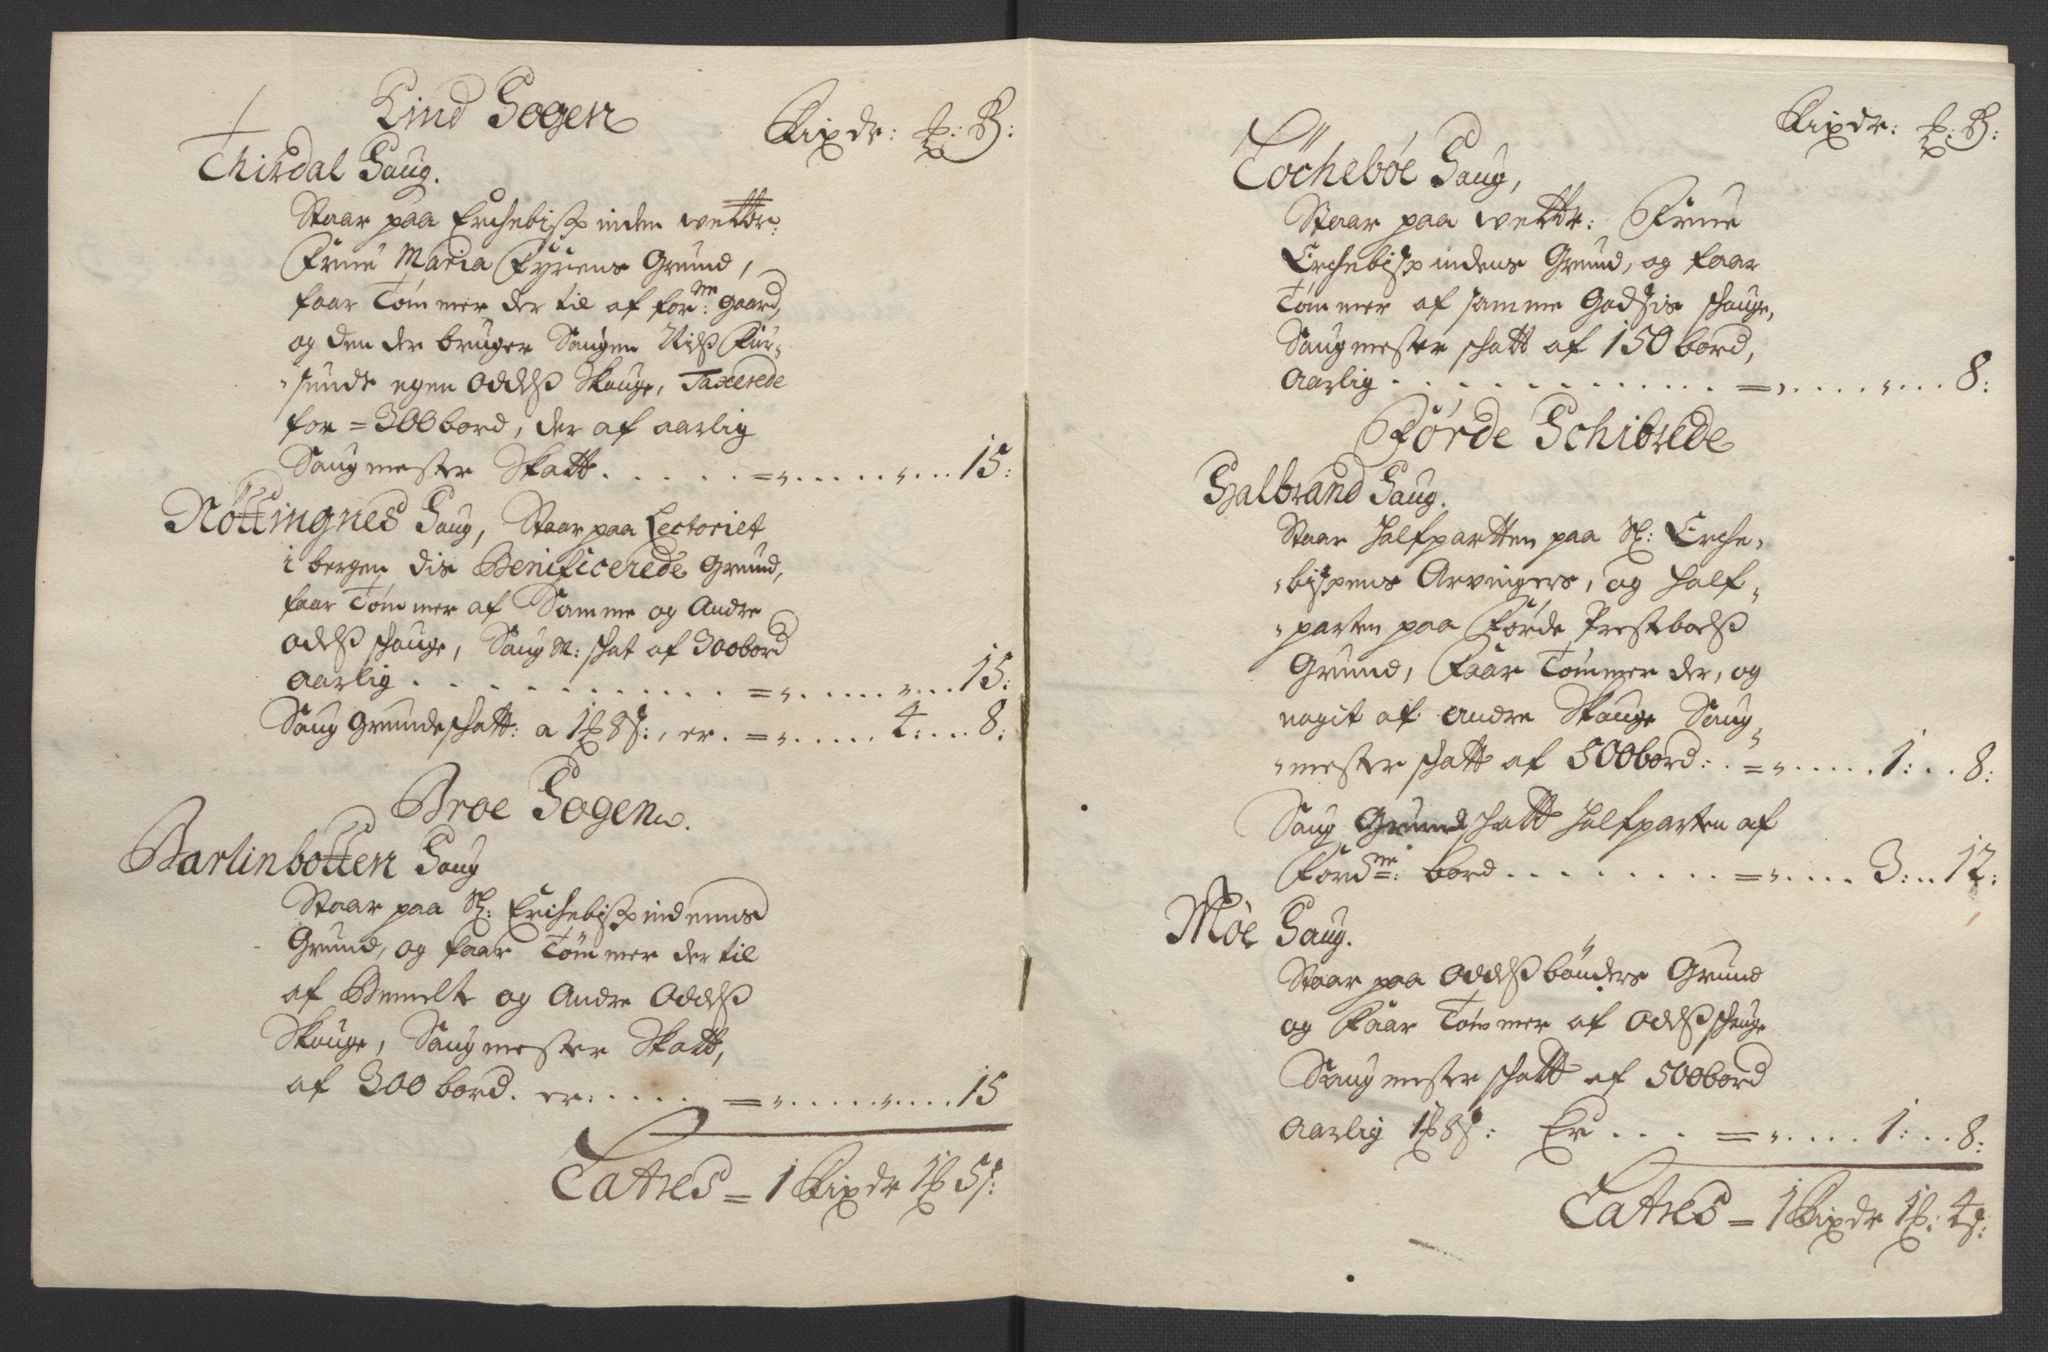 Kind Sogen
Rixdr: ℔: ß:
Thirdal Saug.
Staar paa Erchebispinden wettbr:
Frue Maria Fyrens Grund,
faar Tømmer der til af forne: gaard,
og den der bruger Saugen Nilß
sunds egen Oddelß Skouge, Taxerede
for = 300 bord, der af aarlig
Saugmester Skatt. . . . . . = „ . . . . . „ . . . 15:
Nøttingnes Saug, Staar paa Lectoriet
i bergen dis Benificerede Grund,
faar Tømmer af Samme og Andre
Odelß schouge, Saug M: schat af 300 bord
Aarlig . . . . . . . . . . . . = „ . . . . . „ . . . 15:
Saug Grundeschatt: a 1 ℔ 8 ß:, er . = „ . . . . . 4: . . . 8:
Broe Sogen.
Barlinbotten Saug
Staar paa Sl: Erchebispindenns
Grund, og faar Tømmer der til
af Bemelte og Andre Oddelß
Skouge, Saugmester Skatt,
af 300 bord. er: . . . . . = „ . . . . . „ . . . . 15
Latres = 1 Rixdr 1 ℔ 5 ß:
Rixdr: ℔: ß:
Töchebøe Saug,
Staar paa wettbr: Frue
Erchebispindens Grund, og faar
Tømmer af samme Godsis schouge,
Saugmester schatt af 150 bord,
Aarlig . . . . . . . . . . . . . = „ . . . . „ . . . 8:
Førde Schibrede
Halbrand Saug.
Staar halfpartten paa Sl: Erche-
-bispens Arvingers, og half-
-parten paa Førde Prestebolß
Grund, Faar Tømmer der, og
nogit af andre Skouge Saug-
-mester schatt af 500 bord: . = „ . . . . . 1: . . 8:
Saug Grundschatt halfparten af
Fordne: bord . . . . . . . . = „ . . . . 3: . . 12:
Møe Saug.
Staar paa Oddelßbønders Grund
og Faar Tømmer af Oddelßschouge
Saugmester schatt af 500 bord
Aarlig 1 ℔ 8 ß: Er . . . = „ . . . . 1: . . 8:
Latres = 1 Rixdr 1 ℔: 4 ß: